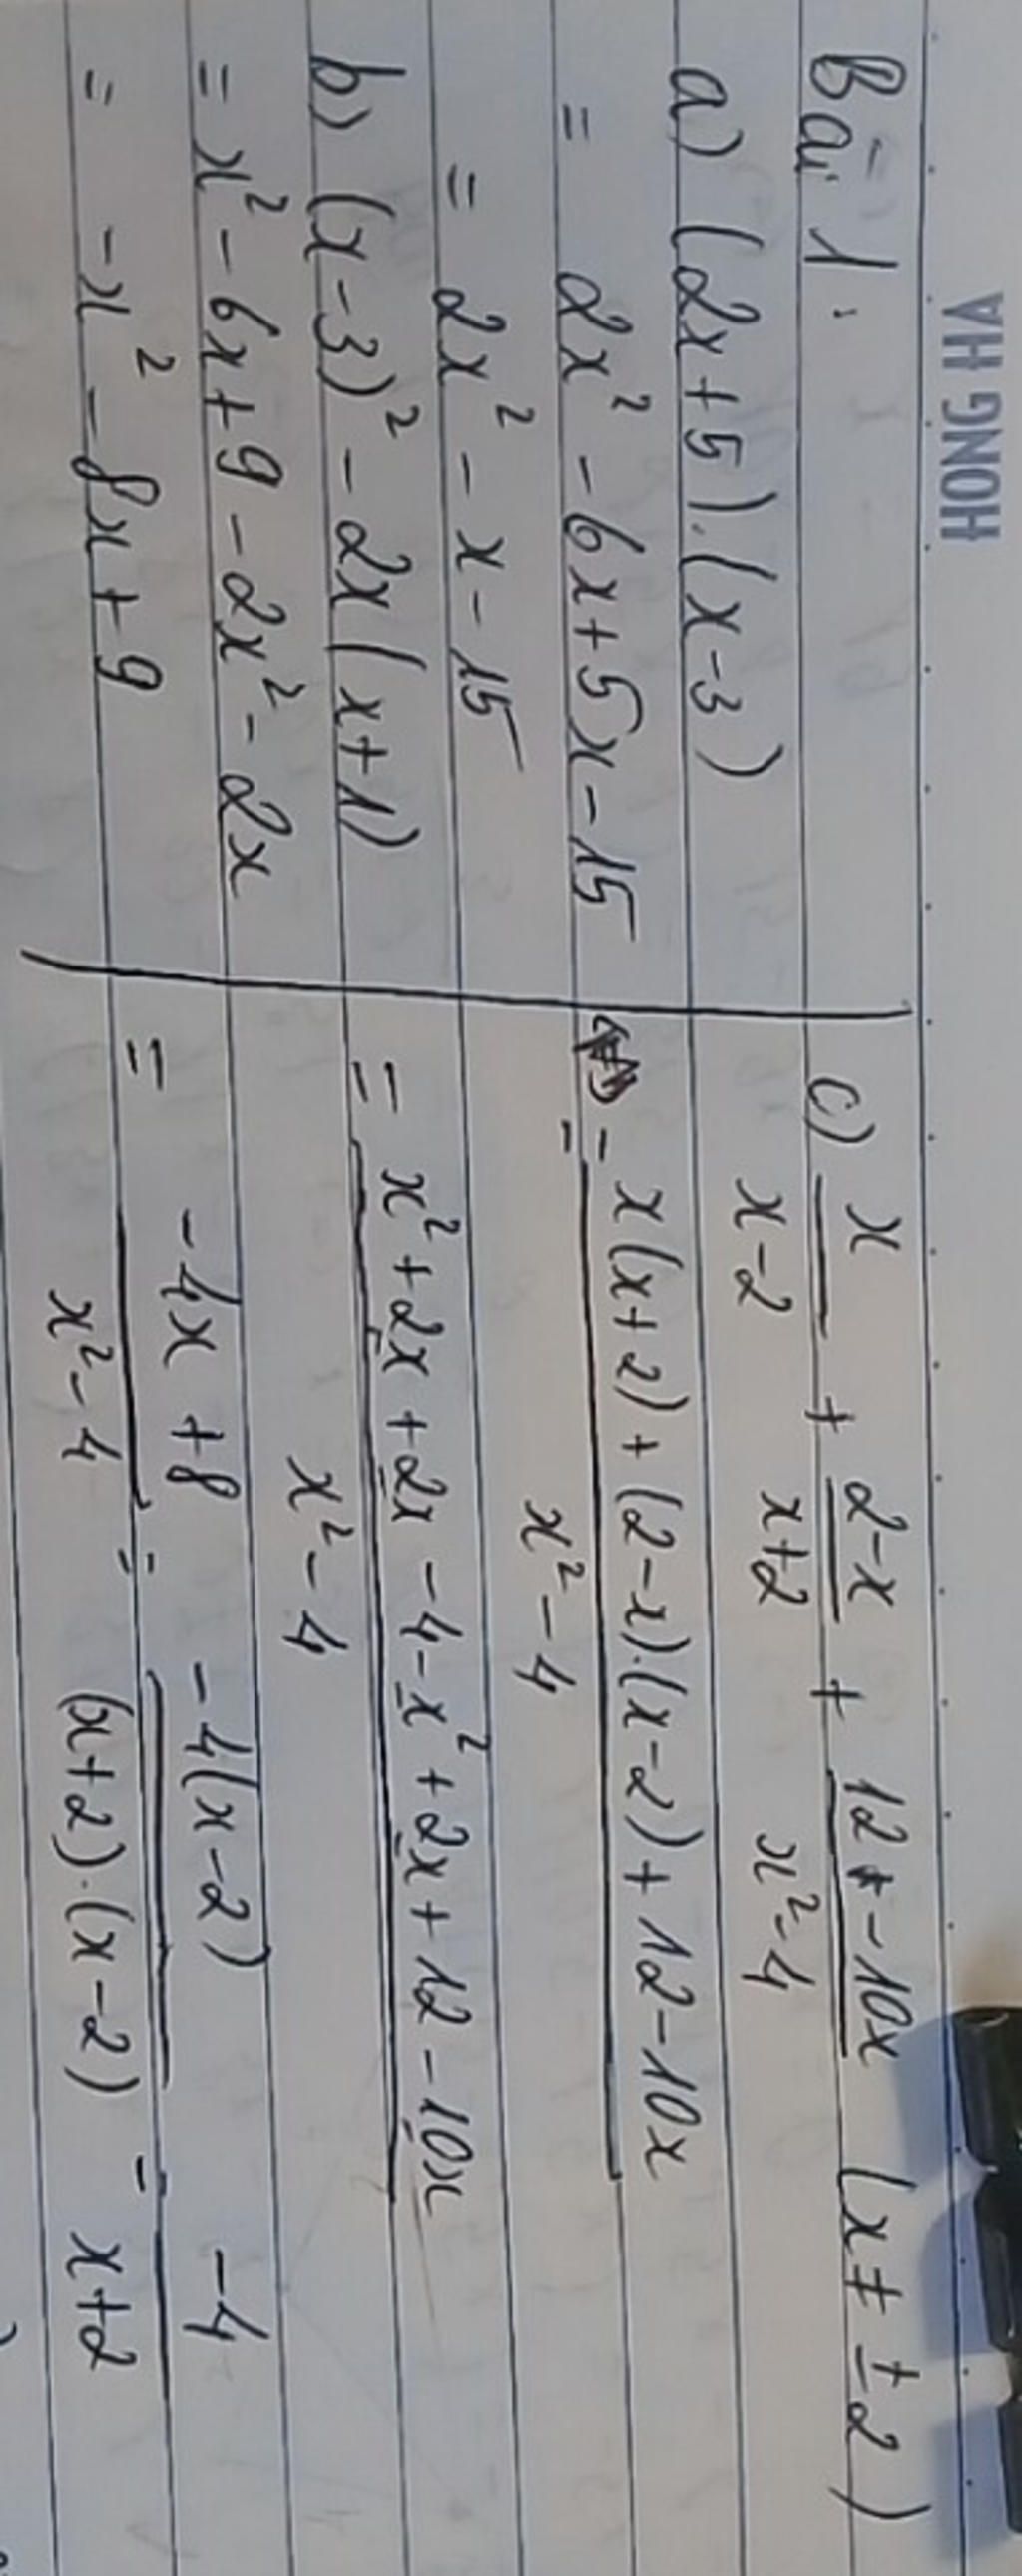 HONG HA
Bài 1:
a) (2x+5).(x-3)
= 2x² - 6x + 5x - 15
= 2x² - x - 15
b) (x-3)² - 2x(x+1)
= x² - 6x + 9 - 2x² - 2x
= -x² - 8x + 9
c) x/(x-2) + (2-x)/(x+2) + (12-10x)/(x²-4) (x ≠ ±2)
= (x(x+2) + (2-x).(x-2) + 12 - 10x)/(x²-4)
= (x² + 2x + 2x - 4 - x² + 2x + 12 - 10x)/(x²-4)
= (-4x + 8)/(x²-4) = (-4(x-2))/((x+2).(x-2)) = (-4)/(x+2)